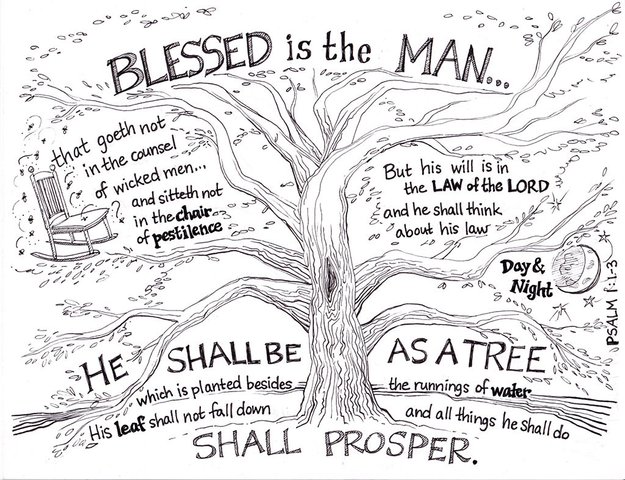 BLESSED is the MAN...
that goeth not
in the counsel
of wicked men...
and sitteth not
in the chair
of pestilence
But his will is in
the LAW of the LORD
and he shall think
about his law
Day &
Night
PSALM 1:1-3
HE SHALL BE AS A TREE
which is planted besides the runnings of water
His leaf shall not fall down and all things he shall do
SHALL PROSPER.